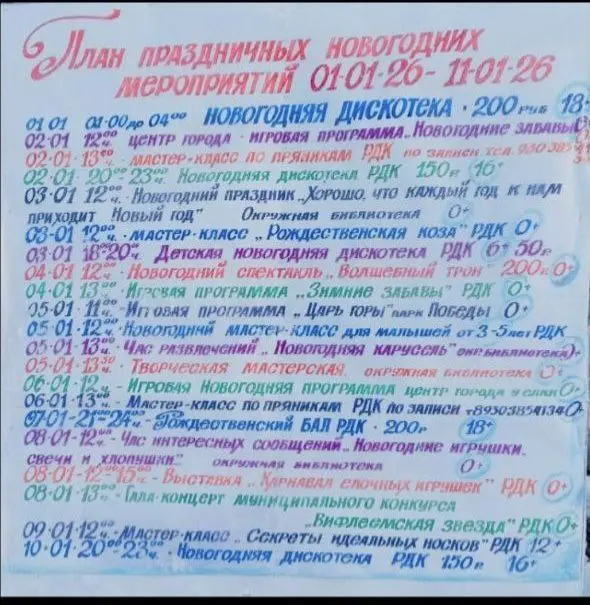 План праздничных новогодних
мероприятий 01·01·26 - 11·01·26
01·01 01·00 до 04⁰⁰ Новогодняя дискотека · 200 руб 18+
02·01 12⁰⁰ч. центр города · игровая программа „Новогодние забавы" 0
02·01 · 13⁰⁰ч. - мастер-класс по пряникам РДК по записи тел.
02·01 20⁰⁰-23⁰⁰ч. Новогодняя дискотека РДК 150р 16+
03·01 12⁰⁰ - Новогодний праздник „Хорошо, что каждый год к нам
приходит Новый год" Окружная библиотека 0+
03·01 12⁰⁰ч. - мастер-класс „Рождественская коза" РДК 0+
03·01 18⁰⁰-20⁰⁰ч. Детская новогодняя дискотека РДК 6+ 50р.
04·01 12⁰⁰ - Новогодний спектакль „Волшебный трон" 200р. 0+
04·01 13⁰⁰ - Игровая программа „Зимние забавы" РДК 0+
05·01 - 11⁰⁰ч. - Игровая программа „Царь горы" парк Победы 0+
05·01 - 12⁰⁰ Новогодний мастер-класс для малышей от 3-5 лет РДК
05·01 - 13⁰⁰ч. Час развлечений „Новогодняя карусель" окр. библиотека 0+
05·01 - 13³⁰ч. - Творческая мастерская. окружная библиотека 0+
06·01 - 12⁰⁰ч. - Игровая Новогодняя программа центр города у елки 0+
06·01 - 13⁰⁰ч. - Мастер-класс по пряникам РДК по записи т89503854134 0
07·01 - 21⁰⁰-24⁰⁰ч. - Рождественский БАЛ РДК · 200р 18+
08·01 - 12⁰⁰ч. - Час интересных сообщений „Новогодние игрушки,
свечи и хлопушки." окружная библиотека 0+
08·01 - 12-15⁰⁰ч. - Выставка „Карнавал елочных игрушек" РДК 0+
08·01 · 13⁰⁰ч. - Гала-концерт муниципального конкурса
„Вифлеемская звезда" РДК 0+
09·01 · 12⁰⁰ч. - Мастер-класс „Секреты идеальных носков" РДК 12+
10·01 · 20⁰⁰-23⁰⁰ч. - Новогодняя дискотека РДК 150р. 16+